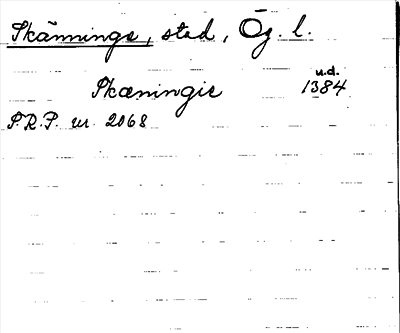 Skänninge, stad, Ög. l.
Skæningie u.d. 1384
S.R.P. nr. 2068